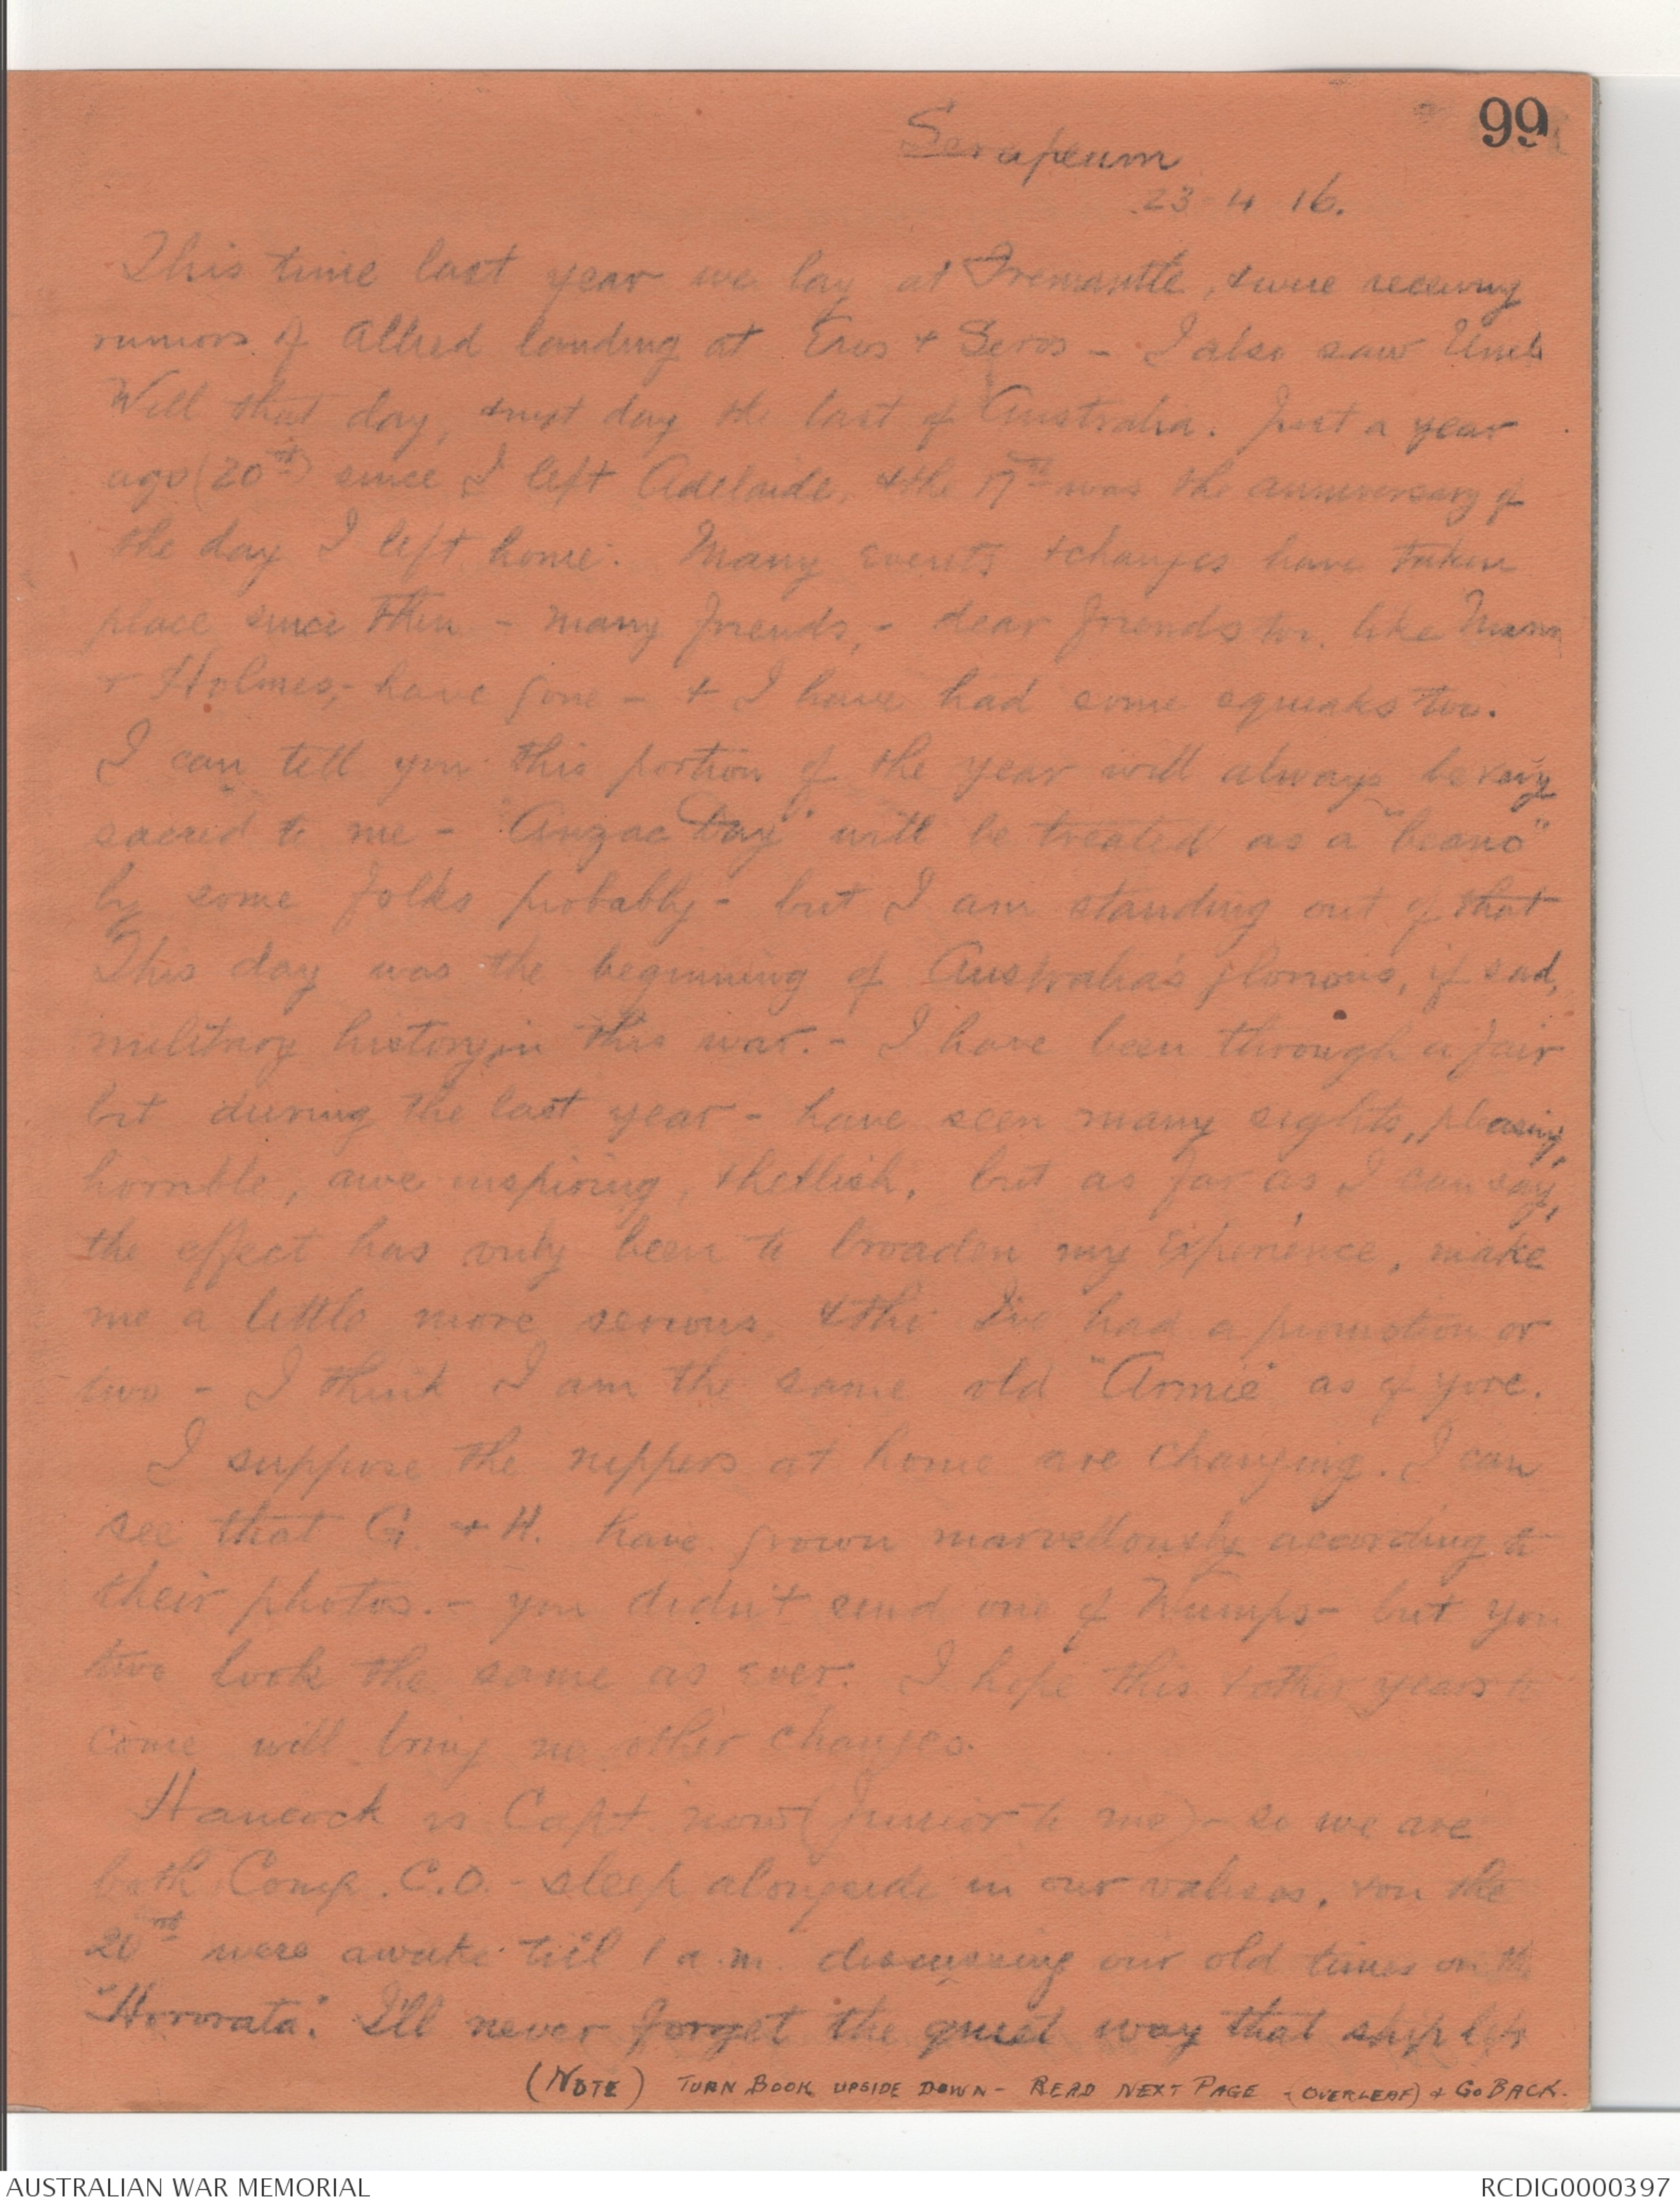 99
Serapeum
23 4 16.
This time last year we lay at Fremantle, & were receiving
rumors of Allied landing at Enos & Seros - I also saw Uncle
Will that day, & next day the last of Australia. Just a year
ago (20th) since I left Adelaide, & the 17th was the anniversary of
the day I left home. Many events & changes have taken
place since then - many friends, - dear friends too, like
& Holmes, - have gone - & I have had some squeaks too.
I can tell you this portion of the year will always be very
sacred to me - "Anzac Day" will be treated as a "beano"
by some folks probably - but I am standing out of that
This day was the beginning of Australia's glorious, if sad,
military history in this war. - I have been through a fair
bit during the last year - have seen many sights, pleasing,
horrible, awe inspiring, & hellish, but as far as I can say,
the effect has only been to broaden my experience, make
me a little more serious, & tho I've had a promotion or
two - I think I am the same old "Armie" as of yore.
I suppose the nippers at home are changing. I can
see that G. & H. have grown marvellously according to
their photos. - you didn't send one of Wumps - but you
two look the same as ever. I hope this & other years to
come will bring no other changes.
Hancock is Capt. now (junior to me) - so we are
both Comp. C.O. - sleep alongside in our valises, & on the
20th were awake till 1 a.m. discussing our old times on the
"Hororata". I'll never forget the quiet way that ship left
(NOTE) TURN BOOK UPSIDE DOWN - READ NEXT PAGE - (OVERLEAF) & GO BACK.
AUSTRALIAN WAR MEMORIAL
RCDIG0000397